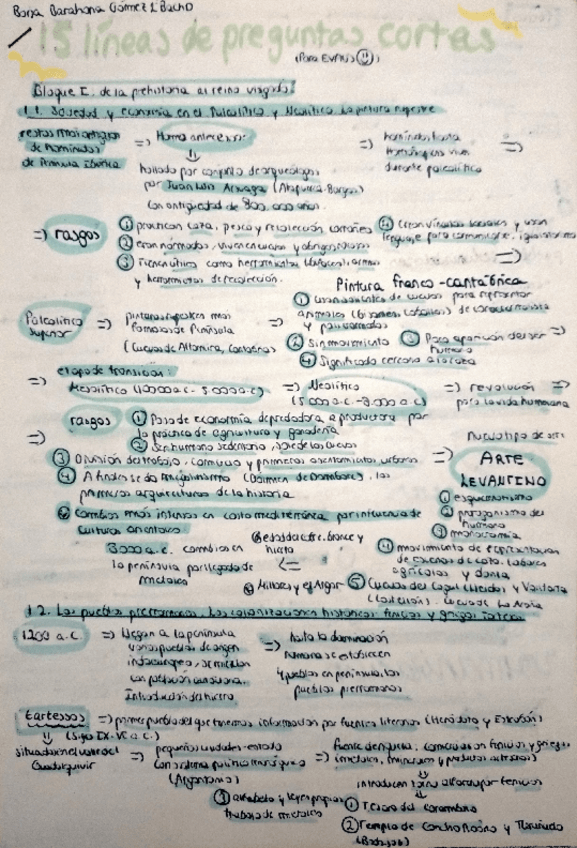 Borja Barahona Gómez 1 Bach D
15 líneas de preguntas cortas
(Para EvAU)
Bloque I. de la prehistoria al reino visigodo
1.1. Sociedad y economía en el Paleolítico y Neolítico. La pintura rupestre
restos más antiguos de homínidos de Península Ibérica => Homo antecessor => homínidos hasta
durante paleolítico =>
hallado por conjunto de arqueólogos
por Juan Luis Arsuaga (Atapuerca-Burgos)
con antigüedad de 800.000 años.
=> rasgos
① practican caza, pesca y recolección
② eran nómadas, viven en cuevas y abrigos
③ Tienen útiles como herramientas
y herramientas de recolección.
④ Crean vínculos sociales y usan
lenguaje para comunicarse =>
Paleolítico superior => pinturas rupestres más
famosas de Península
(Cuevas de Altamira, Cantabria) =>
Pintura franco-cantábrica
① para representar
animales (bisontes, caballos) de
y policromados
② Sin movimiento ③ Rara aparición del ser humano =>
④ Significado cercano a la caza
etapa de transición:
=> Mesolítico (10000 a.C - 5000 a.C) => Neolítico
(5000 a.C - 3000 a.C) => revolución
para la vida humana =>
=> rasgos
① Paso de economía depredadora a productora por
la práctica de agricultura y ganadería
② Ser humano sedentario, sale de las cuevas
③ División del trabajo, comercio y primeros asentamientos urbanos
④ A fines se da megalitismo (Dolmen de Dombate), las
primeras arquitecturas de la historia
Cambios más intensos en costa mediterránea por influencia de
culturas orientales
3000 a.C. cambios en
la península por llegada de
metales
Edad del cobre, bronce y
hierro
Millares y el Argar
=> Nuevo tipo de arte
ARTE
LEVANTINO
① esquematismo
② protagonismo del
humano
③ monocromía
④ movimiento de representación
de escenas de caza, labores
agrícolas y danza
⑤ Cuevas del Cogul (Lleida) y Valltorta
(Castellón)
1.2. Los pueblos prerromanos. Las colonizaciones históricas: fenicios y griegos
1200 a.C. => llegan a la península
varios pueblos de origen
indoeuropeo, se mezclan
con población
Introducción del hierro
=> hasta la dominación
romana se establecen
pueblos en península, los
pueblos prerromanos
tartessos => primer pueblo del que tenemos información por fuentes literarias (Heródoto y Estrabón)
(Siglo IX - VI a.C.)
situado en el valle del
Guadalquivir => pequeñas ciudades-estado
con sistema político monárquico
(Argantonio)
③ alfabeto y leyes propias
trabajo de metales
=> fuente de riqueza: comercian con fenicios y griegos
(metales, minerales y productos
introducen torno alfarero por fenicios
① Tesoro del Carambolo
② Templo de Cancho Roano y Turuñuelo
(Badajoz)